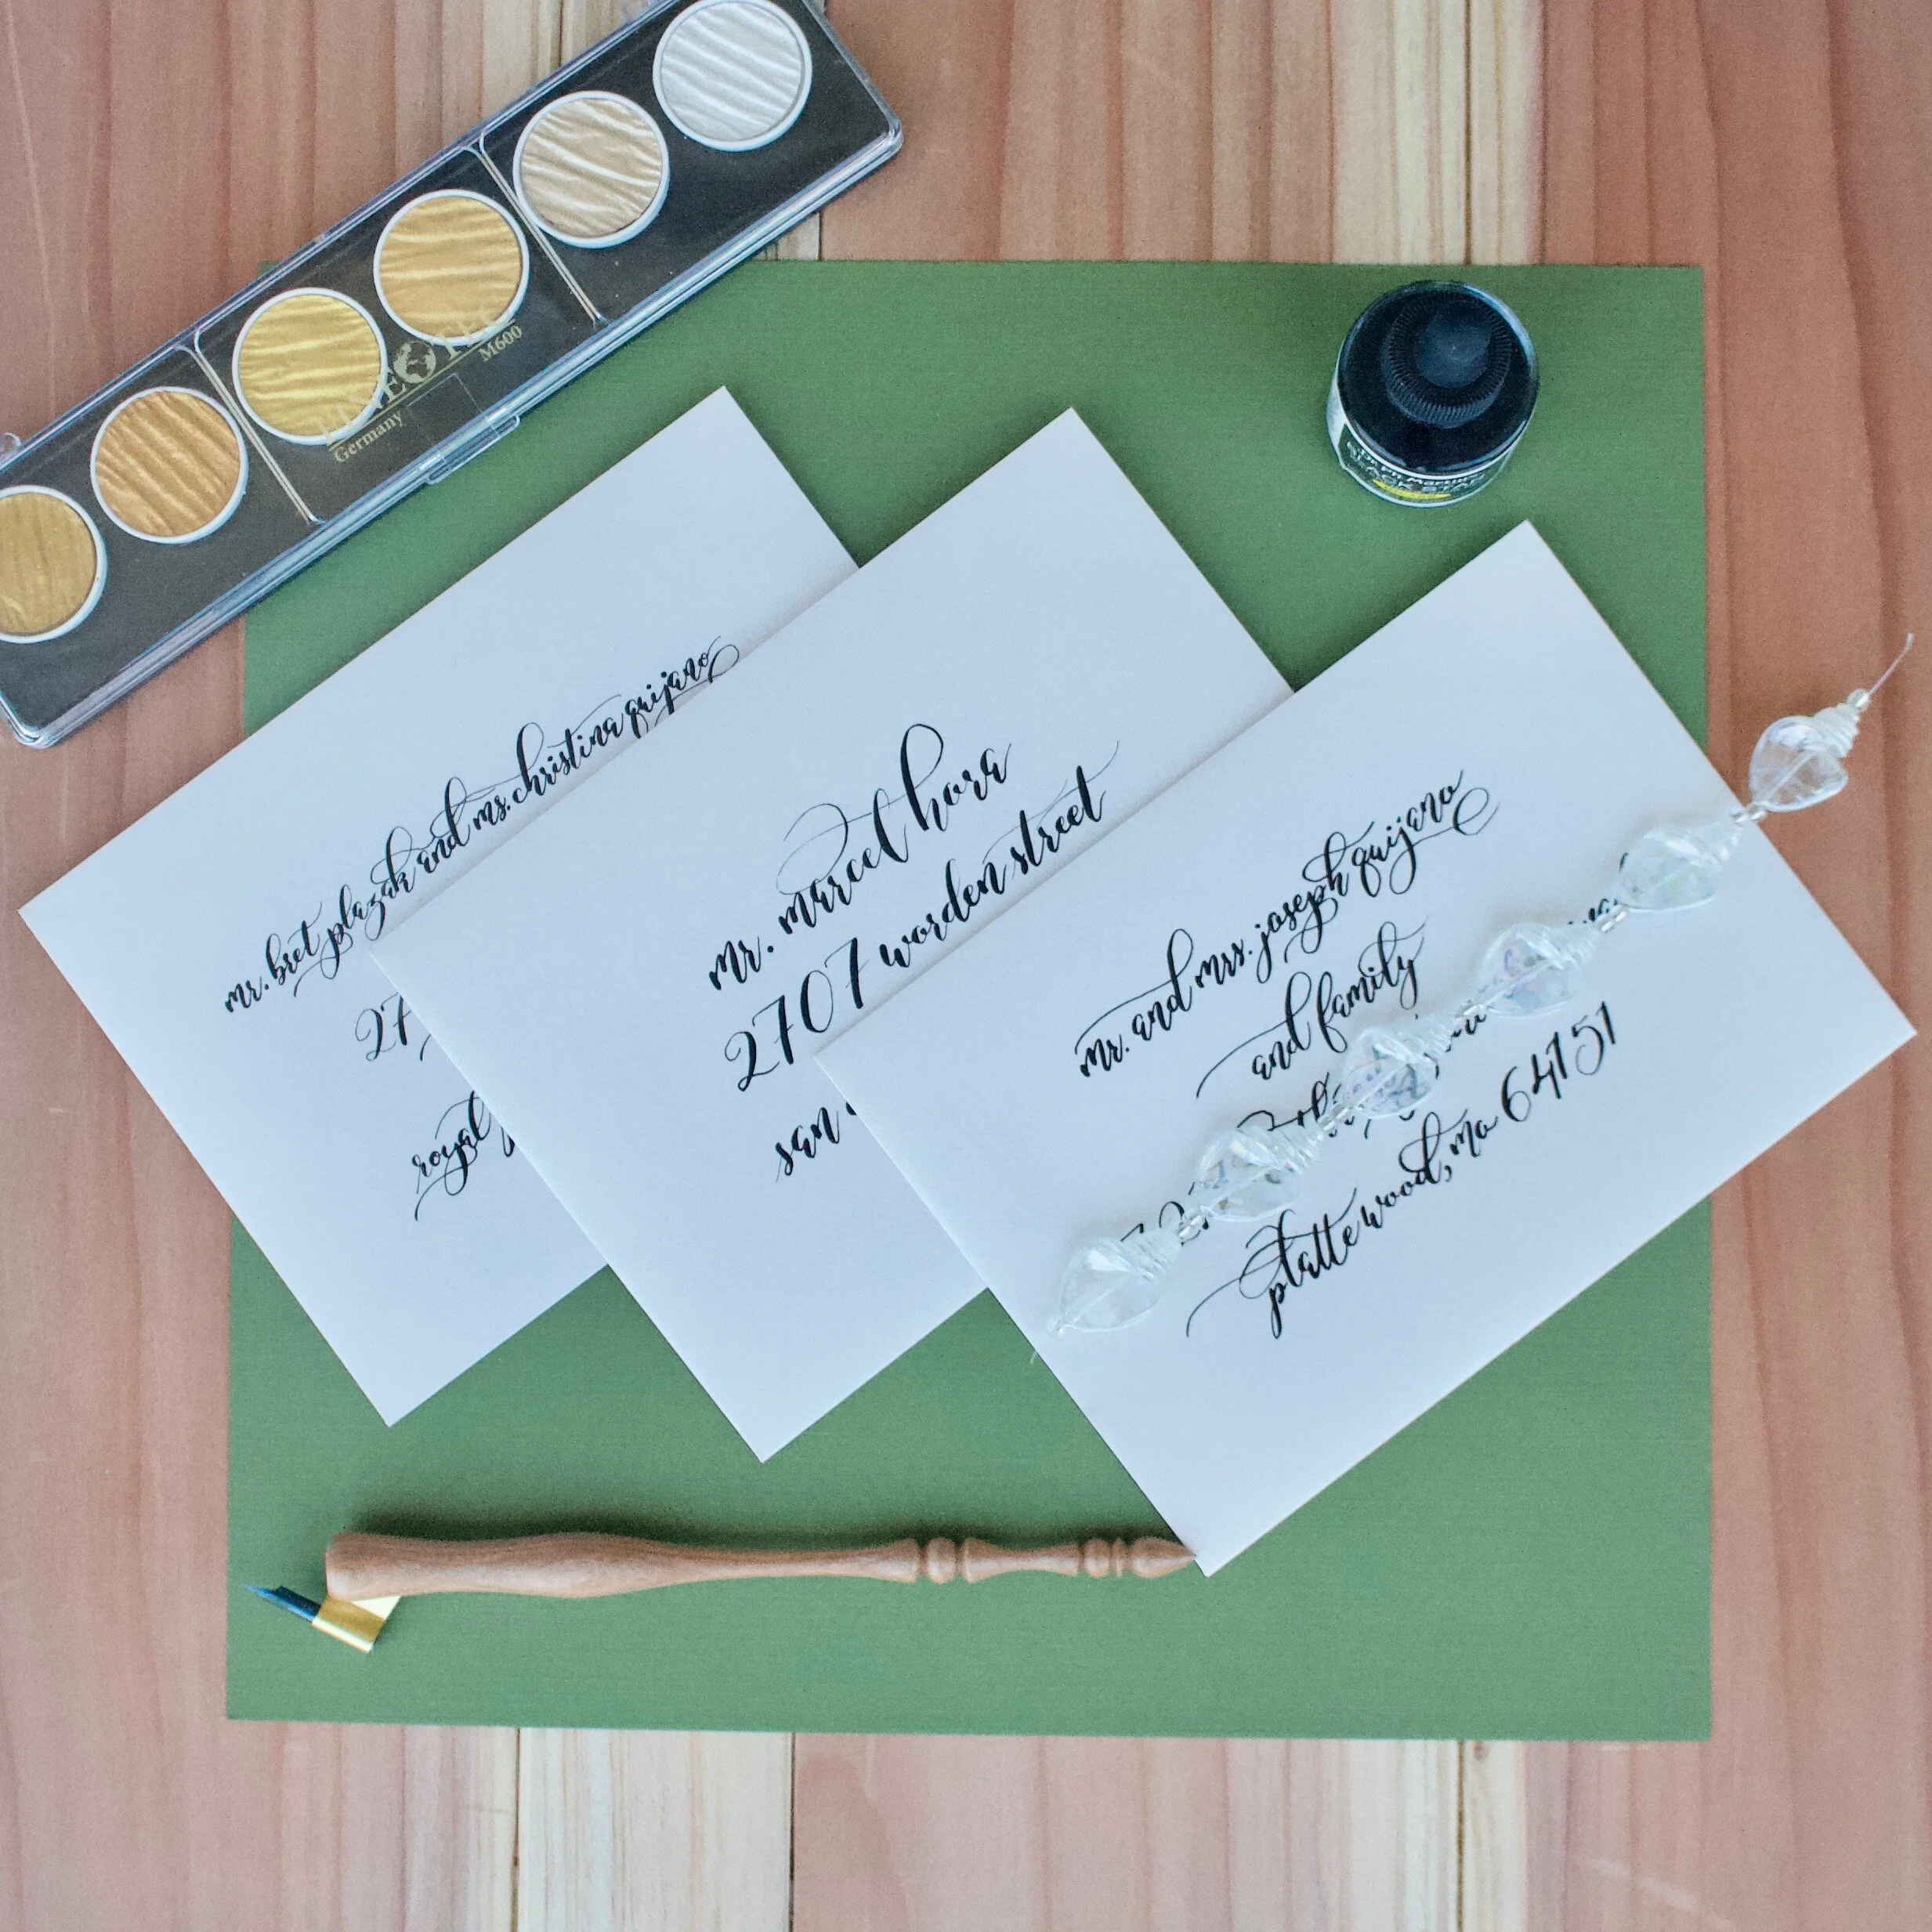 FINETEC
M600
Germany
Dr. Ph. Martin's
BLACK STAR
mr. bret plazak and ms. christina quijano
27
royal
mr. marcel hora
2707 worden street
san
mr. and mrs. joseph quijano
and family
platte wood, mo 64151